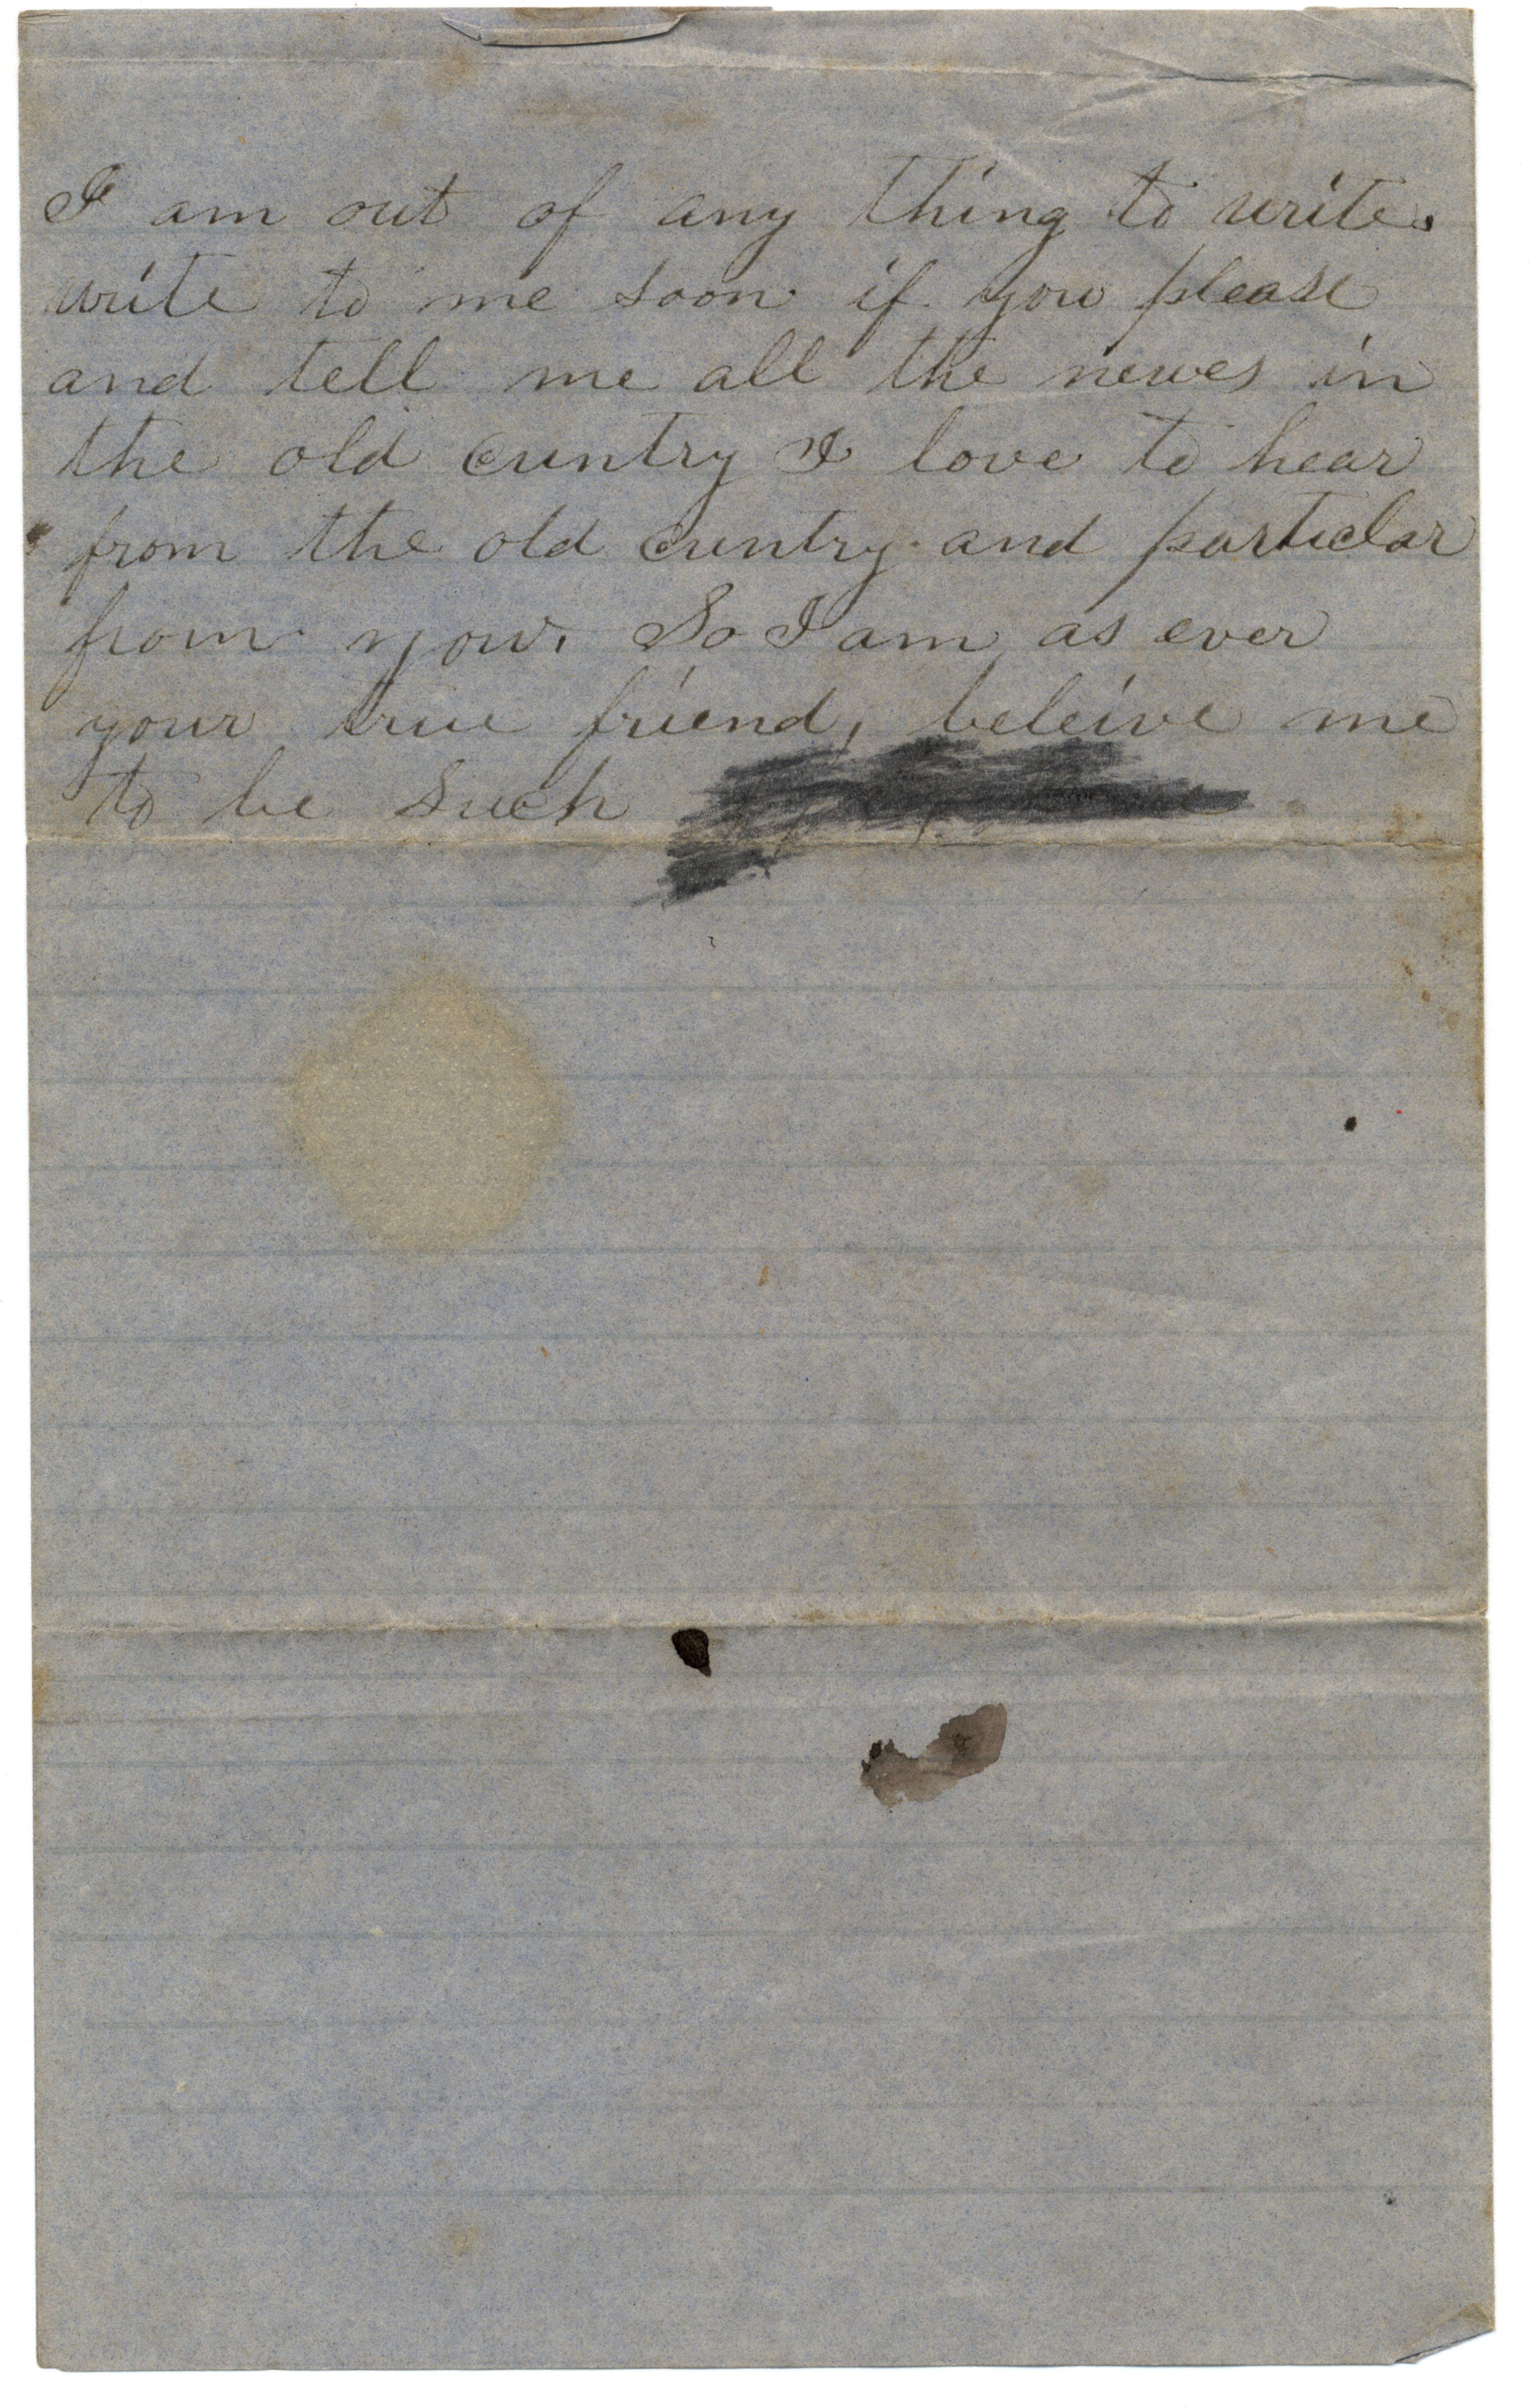 I am out of any thing to write.
write to me soon if you please
and tell me all the newes in
the old cuntry I love to hear
from the old cuntry and particlar
from you. So I am as ever
your true friend, beleive me
to be such